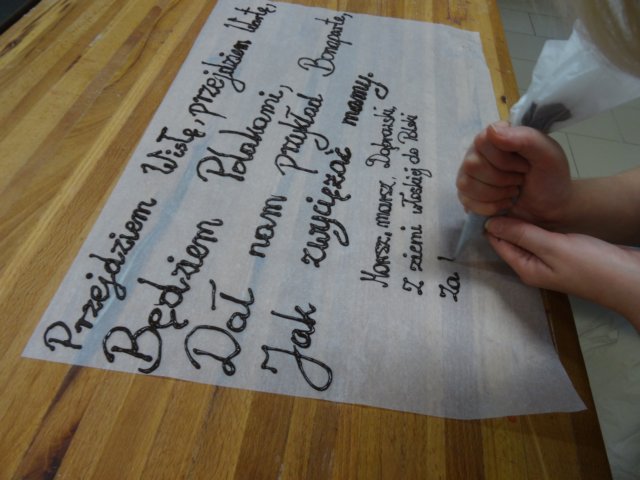 Przejdziem Wisłę, przejdziem Wartę,
Będziem Polakami,
Dał nam przykład Bonaparte,
Jak zwyciężać mamy.
Marsz, marsz, Dąbrowski,
Z ziemi włoskiej do Polski
Za